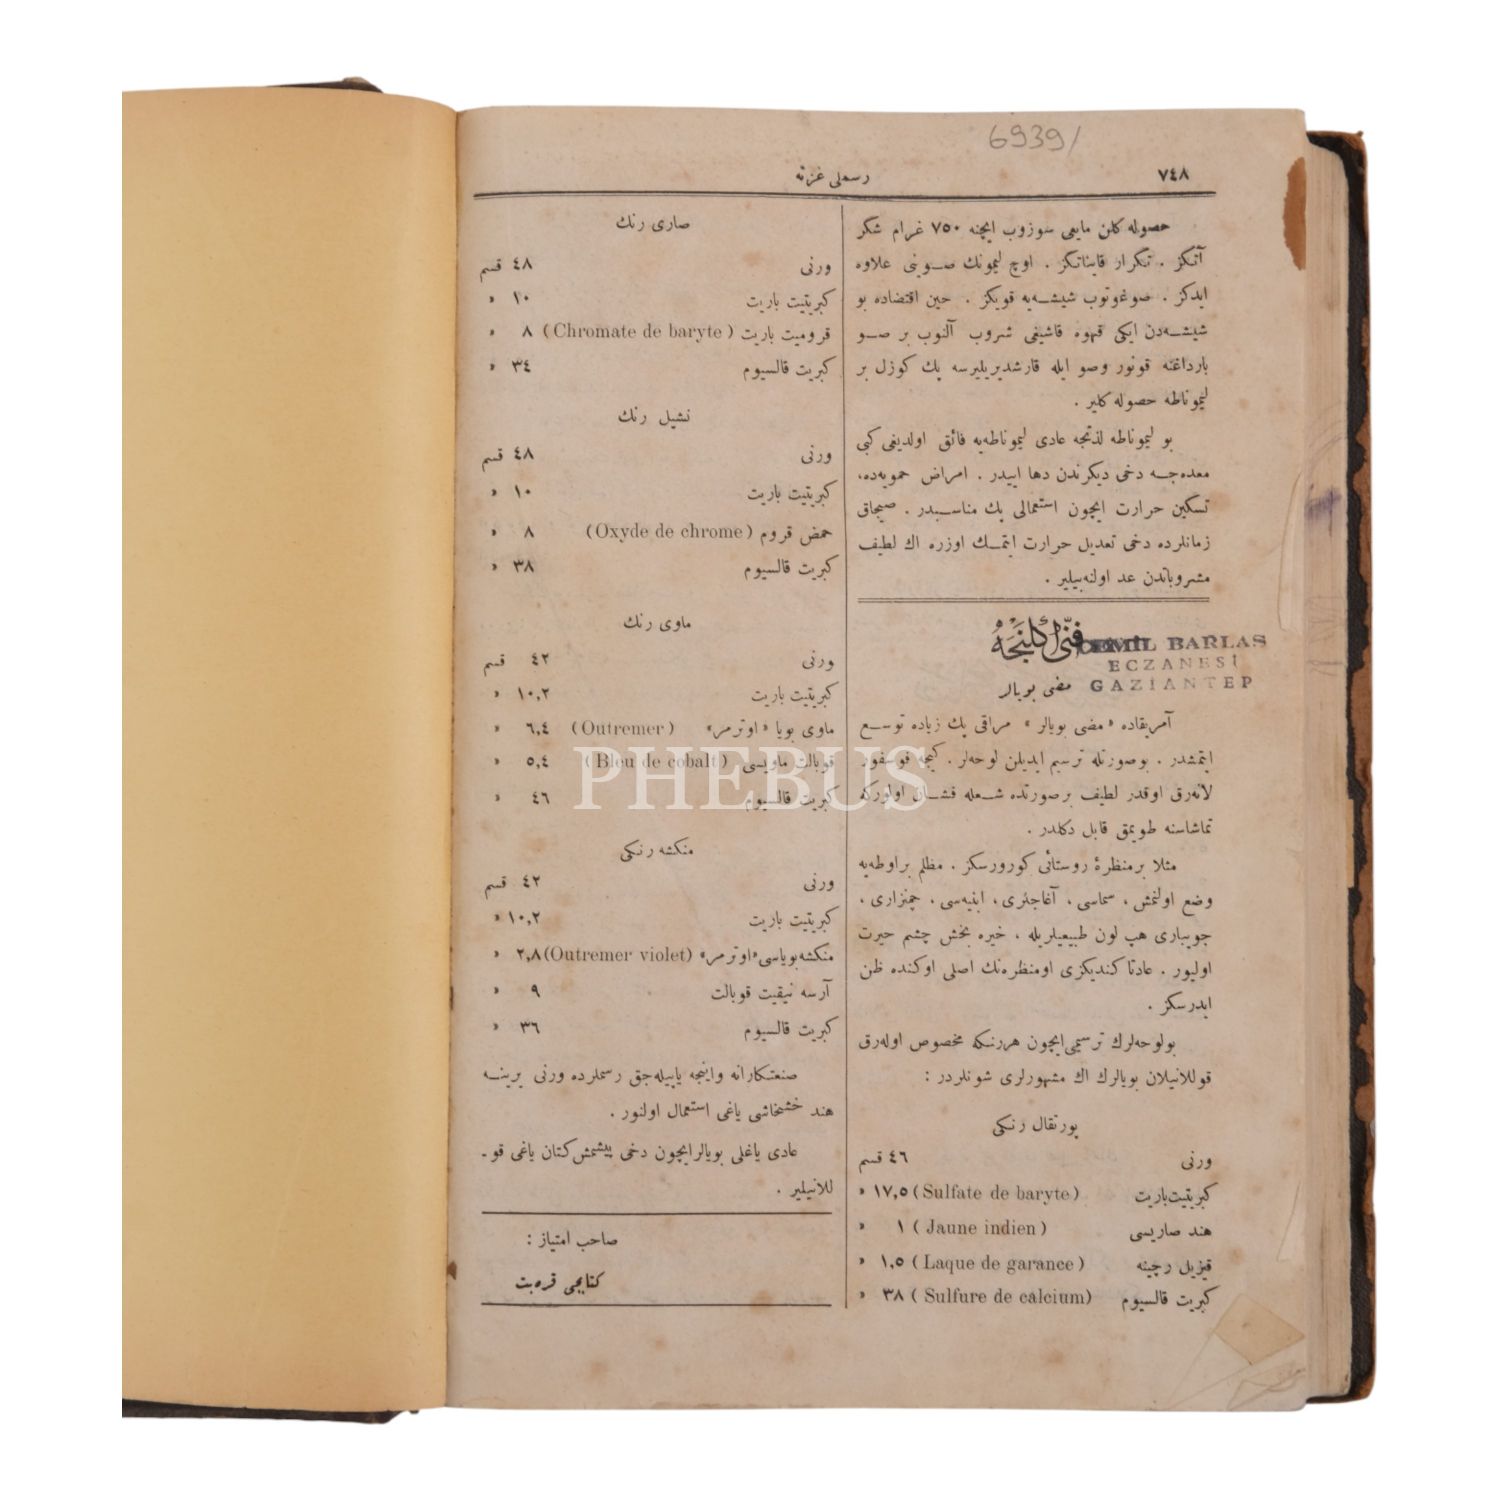 6939/
٧٤٨
رسملی غزته
حصوله كلن مایعی سوزوب ایچنه ٧٥٠ غرام شكر
آتیكز . تكرار قایناتیكز . اوچ لیمونك صوینی علاوه
ایدكز . صوغوتوب شیشه‌یه قویكز . حین اقتضاده بو
شیشه‌دن ایكی قهوه قاشیغی شروب آلنوب بر صو
بارداغنه قونور وصو ایله قارشدیریلیرسه پك كوزل بر
لیموناطه حصوله كلیر .
بو لیموناطه لذتجه عادی لیموناطه‌یه فائق اولدیغی كبی
معده‌جه دخی دیكرندن دها اییدر . امراض حمویه‌ده،
تسكین حرارت ایچون استعمالی پك مناسبدر . صیجاق
زمانلرده دخی تعدیل حرارت ایتمك اوزره اك لطیف
مشروباتدن عد اولنه‌بیلیر .
فنّی اكلنجه
CEMİL BARLAS
ECZANESİ
GAZİANTEP
مضی بویالر
آمریقاده «مضی بویالر» مراقی پك زیاده توسع
ایتمشدر . بوصورتله ترسیم ایدیلن لوحه‌لر . كیجه فوسفور
لانه‌رق اوقدر لطیف برصورتده شعله فشان اولوركه
تماشاسنه طویمق قابل دكلدر .
مثلا برمنظرهٔ روستائی كورورسكز . مظلم براوطه‌یه
وضع اولنمش، سماسی، آغاجلری، ابنیه‌سی، چمنزاری،
جویباری هپ لون طبیعیلریله، خیره بخش چشم حیرت
اولیور . عادتا كندیكزی اومنظره‌نك اصلی اوكنده ظن
ایدرسكز .
بولوحه‌لرك ترسیمی ایچون هررنكه مخصوص اوله‌رق
قوللانیلان بویالرك اك مشهورلری شونلردر :
پورتقال رنكی
ورنی ٤٦ قسم
كبریتیت باریت (Sulfate de baryte) ١٧,٥ «
هند صاریسی (Jaune indien) ١ «
قیزیل رچینه (Laque de garance) ١,٥ «
كبریت قالسیوم (Sulfure de calcium) ٣٨ «
صاری رنك
ورنی ٤٨ قسم
كبریتیت باریت ١٠ «
قرومیت باریت (Chromate de baryte) ٨ «
كبریت قالسیوم ٣٤ «
یشیل رنك
ورنی ٤٨ قسم
كبریتیت باریت ١٠ «
حمض قروم (Oxyde de chrome) ٨ «
كبریت قالسیوم ٣٨ «
ماوی رنك
ورنی ٤٢ قسم
كبریتیت باریت ١٠,٢ «
ماوی بویا «اوترمر» (Outremer) ٦,٤ «
قوبالت ماویسی (Bleu de cobalt) ٥,٤ «
كبریت قالسیوم ٤٦ «
PHEBUS
منكشه رنكی
ورنی ٤٢ قسم
كبریتیت باریت ١٠,٢ «
منكشه بویاسی «اوترمر» (Outremer violet) ٢,٨ «
آرسه نیقیت قوبالت ٩ «
كبریت قالسیوم ٣٦ «
صنعتكارانه واینجه یاپیله‌جق رسملرده ورنی یرینه
هند خشخاشی یاغی استعمال اولنور .
عادی یاغلی بویالرایچون دخی پیشمش كتان یاغی قو-
للانیلیر .
صاحب امتیاز :
كتابجی قره‌بت